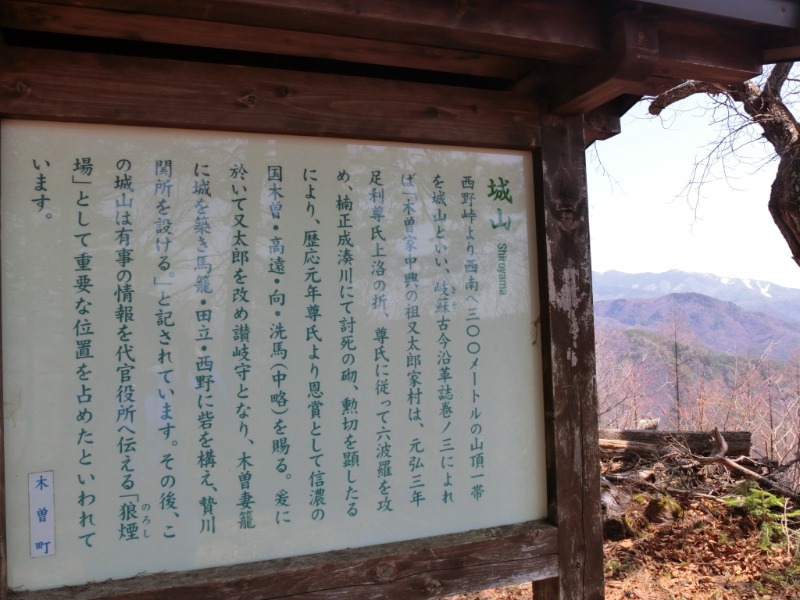 城山 Shiroyama
西野峠より西南へ三〇〇メートルの山頂一帯
を城山といい、岐蘇古今沿革誌巻ノ三によれ
きそ
ば「木曽家中興の祖又太郎家村は、元弘三年
足利尊氏上洛の折、尊氏に従って六波羅を攻
め、楠正成湊川にて討死の砌、勲切を顕したる
により、歴応元年尊氏より恩賞として信濃の
国木曽・高遠・向・洗馬(中略)を賜る。爰に
於いて又太郎を改め讃岐守となり、木曽妻籠
に城を築き馬籠・田立・西野に砦を構え、贄川
関所を設ける。」と記されています。その後、こ
の城山は有事の情報を代官役所へ伝える「狼煙
のろし
場」として重要な位置を占めたといわれて
います。
木曽町